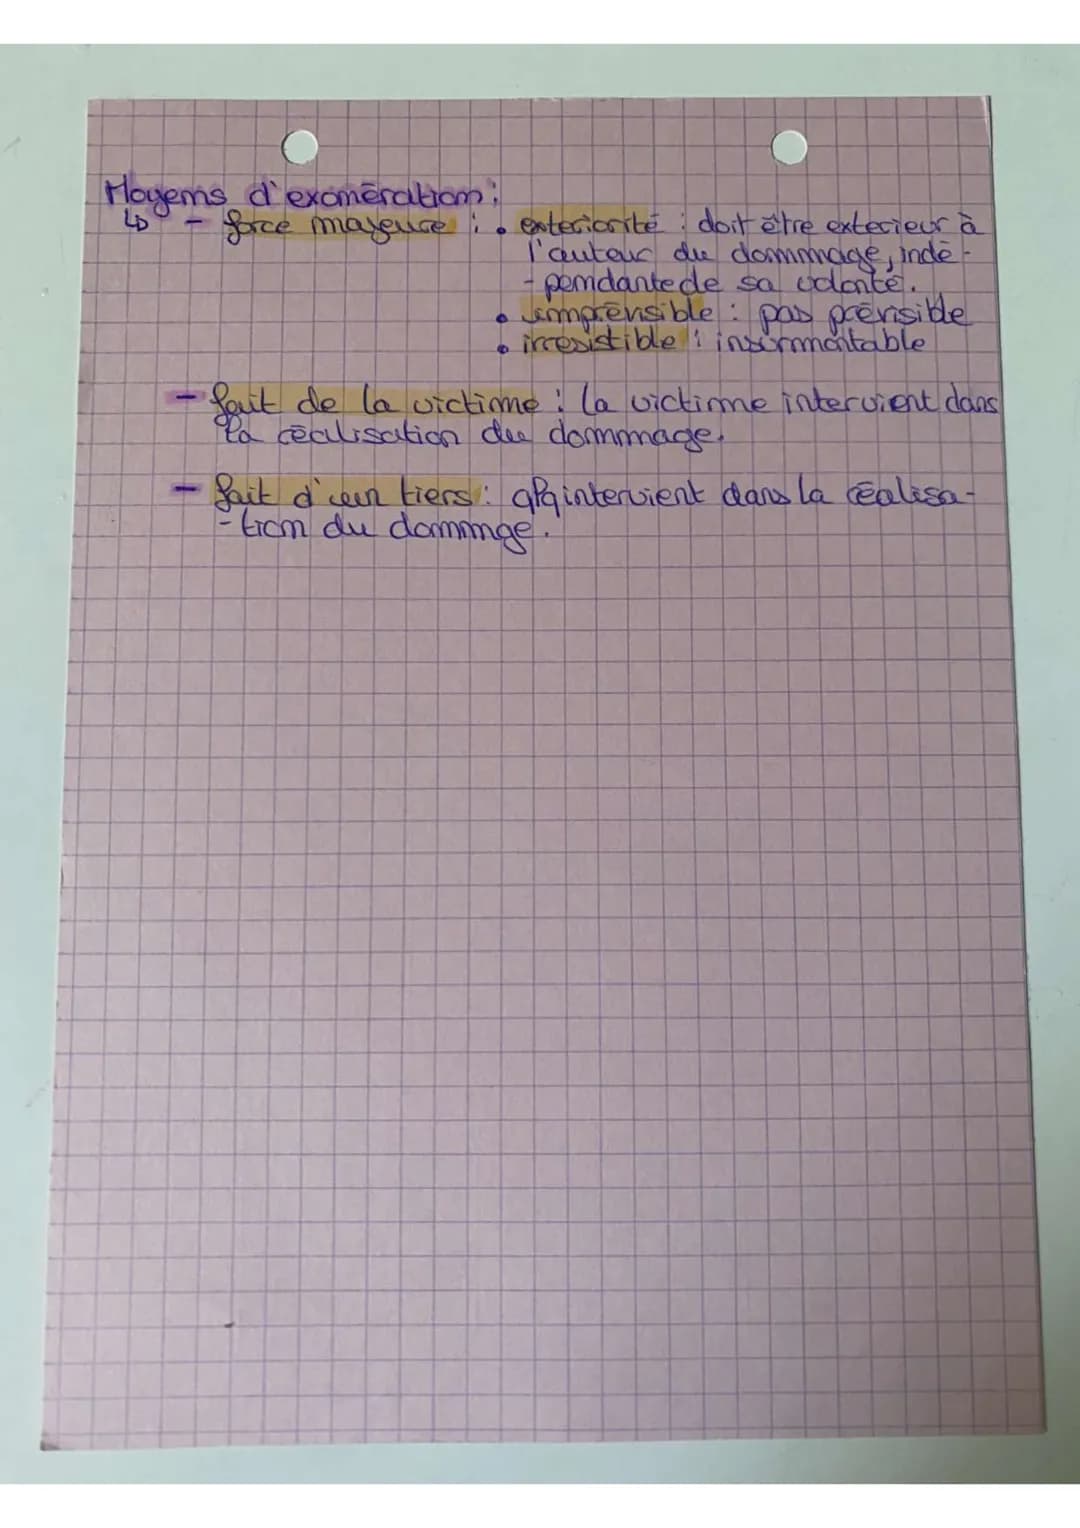 Moyens d'exonération :
↳ - force majeure : • exteriorité : doit être exterieur à
l'auteur du dommage, indé-
-pendante de sa volonté.
• imprévisible : pas prévisible
• irresistible : insurmontable
- fait de la victime : la victime intervient dans
la réalisation du dommage.
- fait d'un tiers : qlq intervient dans la réalisa-
-tion du dommge.